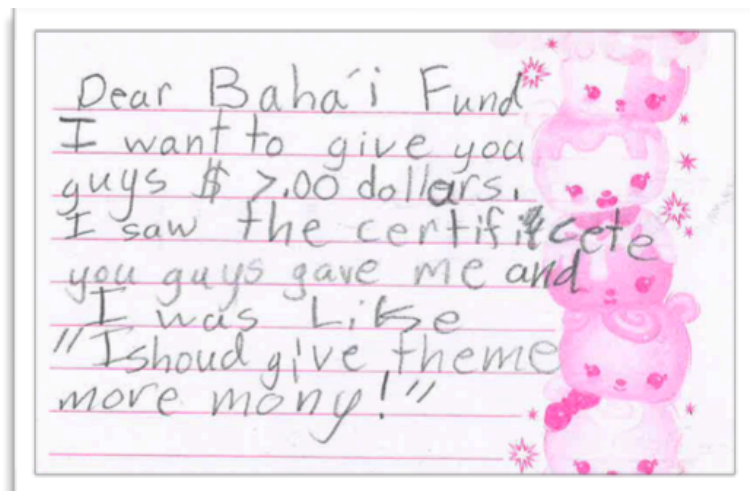 Dear Baha'i Fund
I want to give you
guys $ 7.00 dollars.
I saw the certificete
you guys gave me and
I was Like
"Ishoud give theme
more mony!"